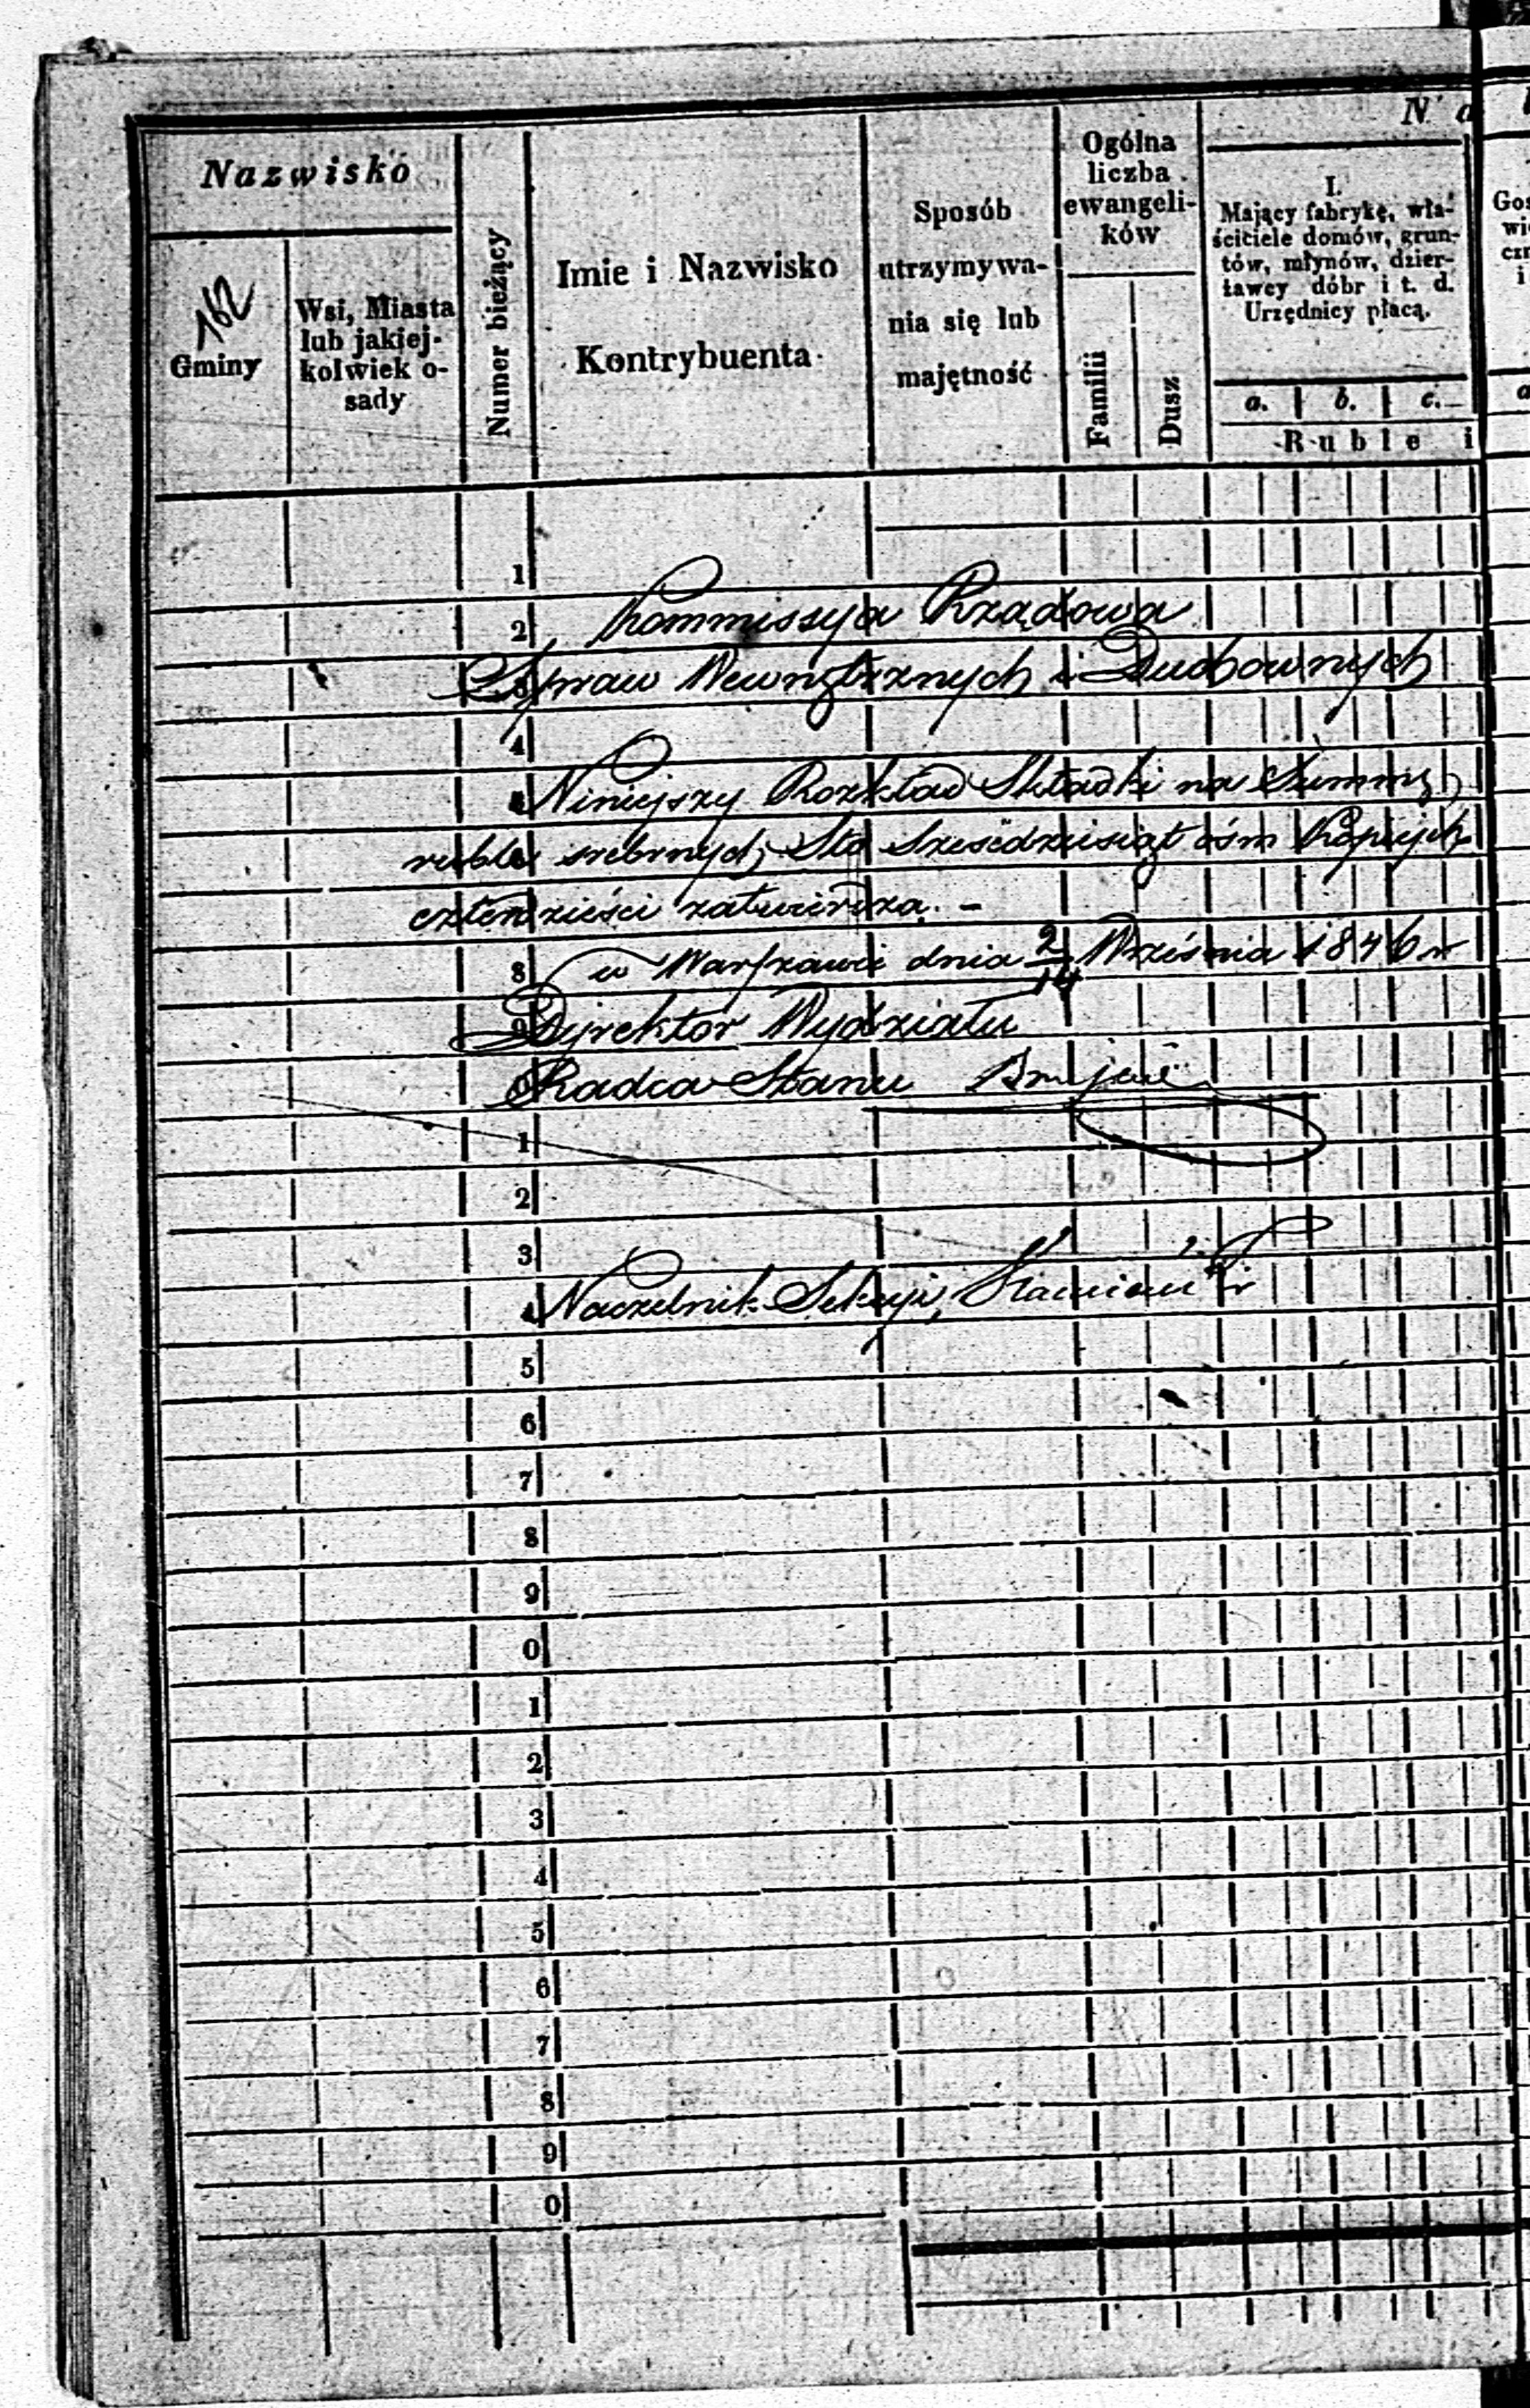 N a
Nazwisko
162
Gminy
Wsi, Miasta
lub jakiej-
kolwiek o-
sady
Numer bieżący
Imie i Nazwisko
Kontrybuenta
Sposób
utrzymywa-
nia się lub
majętność
Ogólna
liczba
ewangeli-
ków
Familii
Dusz
I.
Mający fabrykę, wła-
ściciele domów, grun-
tów, młynów, dzier-
ławcy dóbr i t. d.
Urzędnicy płacą.
a. b. c.
Ruble i
1
2 Kommissyja Rządowa
Spraw Wewnętrznych i Duchownych
4
Niniejszy Rozkład Składki na Summę
rubli srebrnych Sto Sześćdziesiąt ośm Kopiejek
czterdzieści zatwierdza. -
8 w Warszawie dnia 2/14 Września 1846 r
9 Dyrektor Wydziału
Radca Stanu
1
2
3
4 Naczelnik Sekcyi,
5
6
7
8
9
0
1
2
3
4
5
6
7
8
9
0